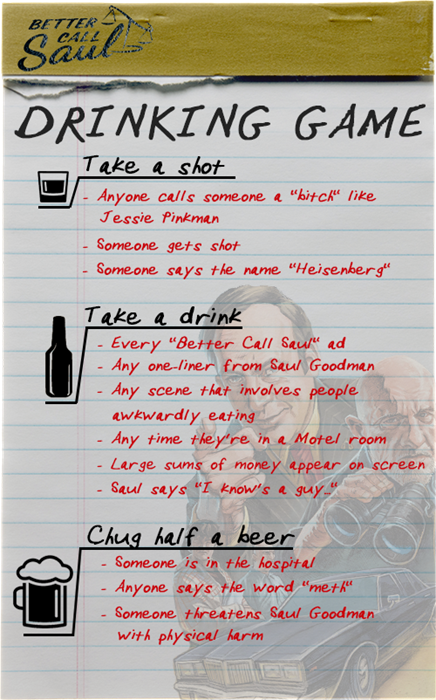 BETTER
CALL
Saul
DRINKING GAME
Take a shot
- Anyone calls someone a "bitch" like
Jessie Pinkman
- Someone gets shot
- Someone says the name "Heisenberg"
Take a drink
- Every "Better Call Saul" ad
- Any one-liner from Saul Goodman
- Any scene that involves people
awkwardly eating
- Any time they're in a Motel room
- Large sums of money appear on screen
- Saul says "I know's a guy..."
Chug half a beer
- Someone is in the hospital
- Anyone says the word "meth"
- Someone threatens Saul Goodman
with physical harm